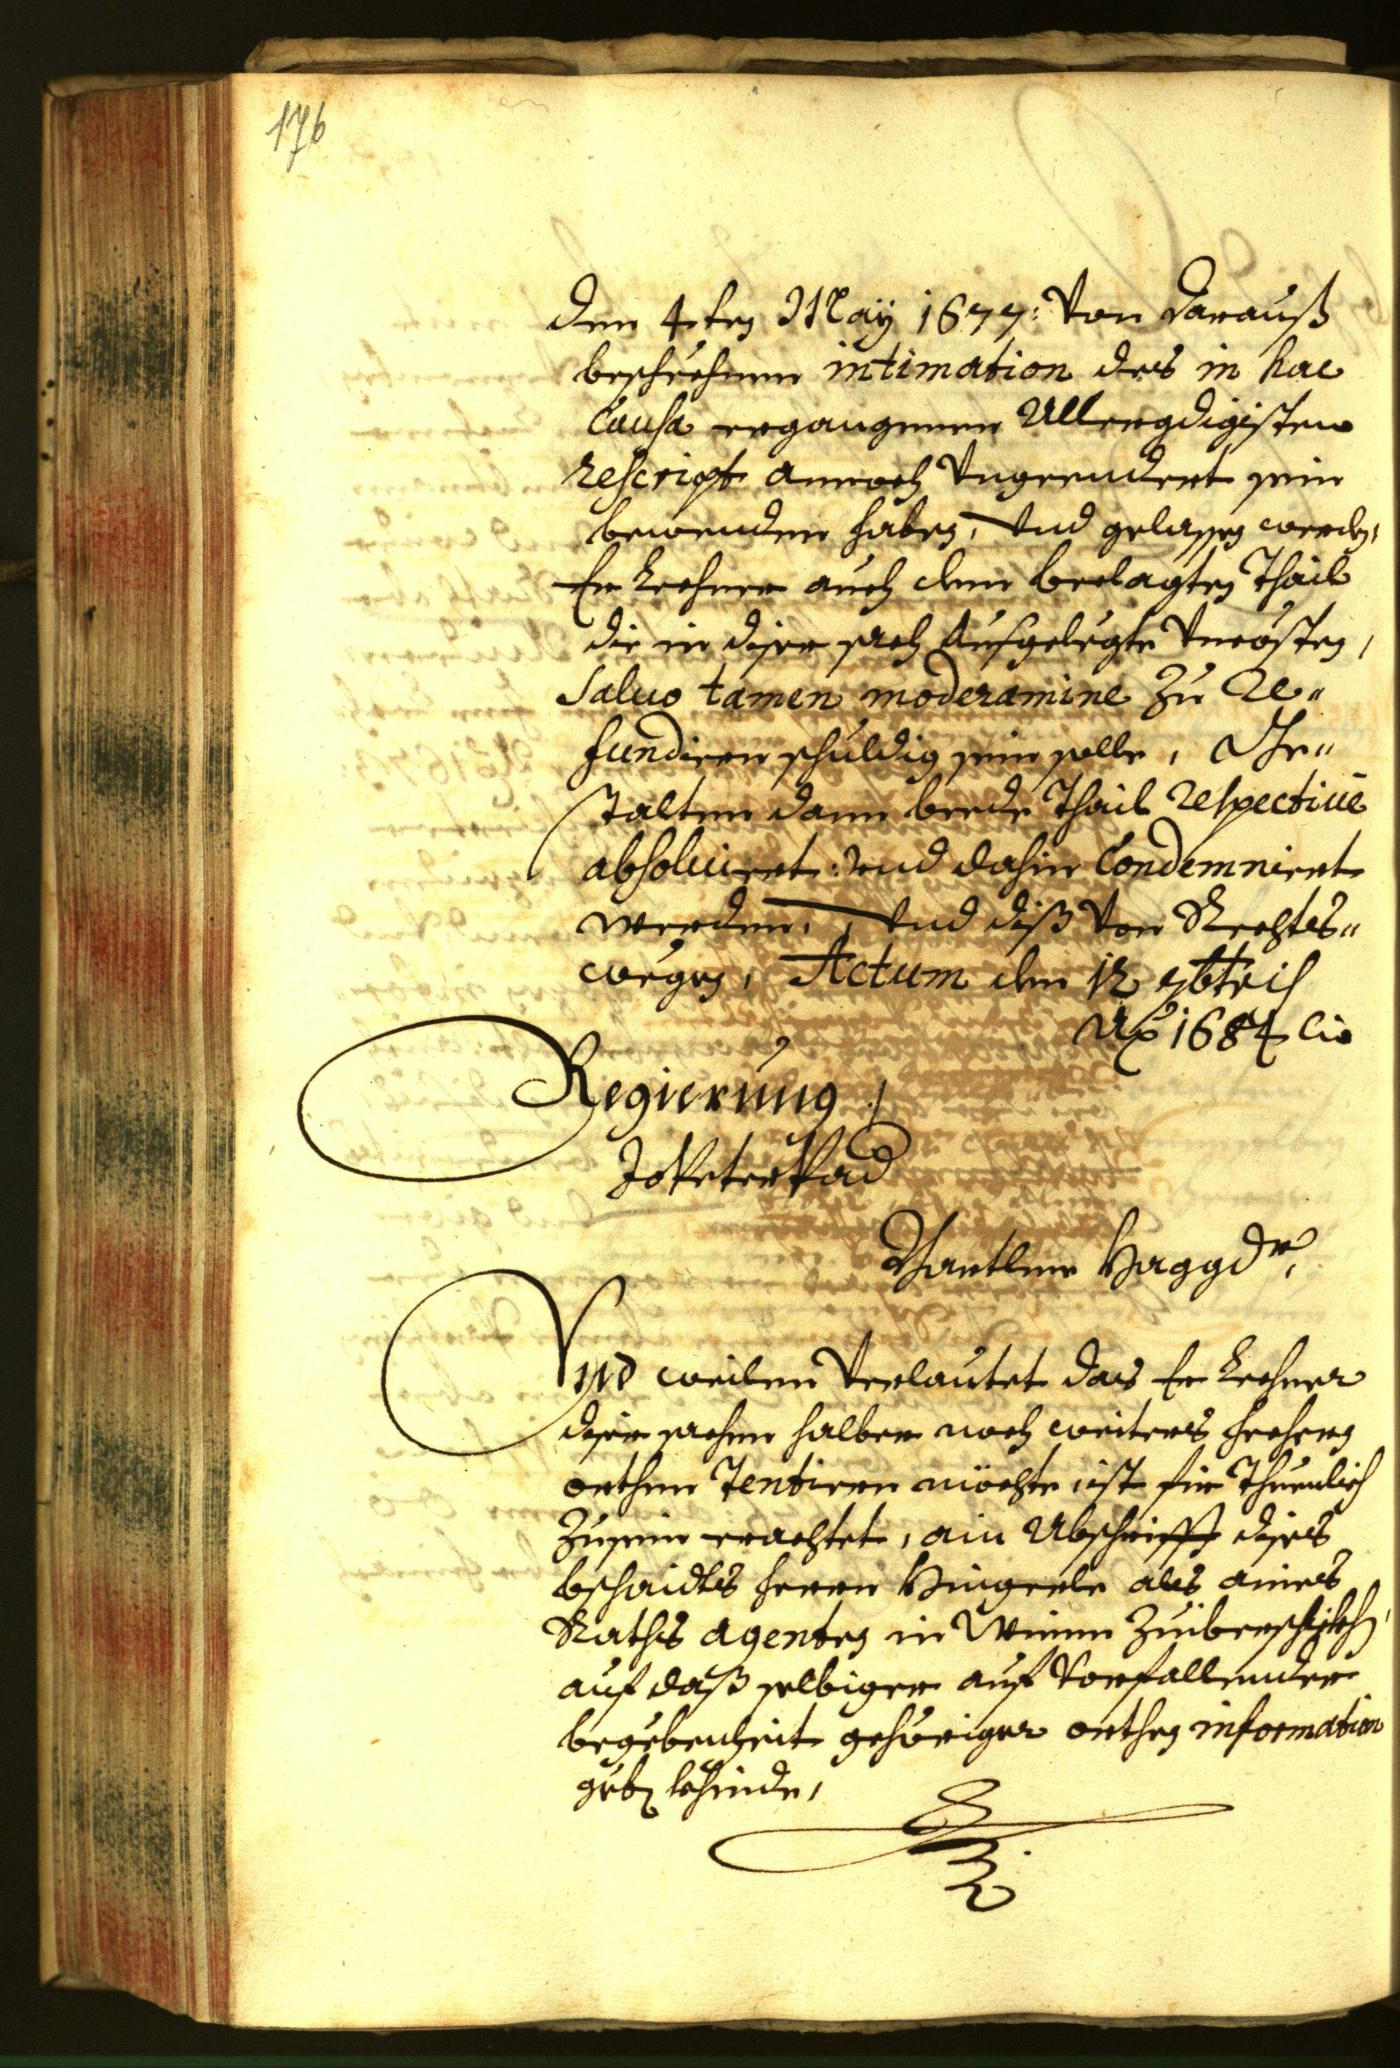 176
den 4ten May 1677: von darauß
beschehenen intimation des in hac
Causa ergangnen Allergdigisten
rescript annoch Vngeendert sein
bewenden haben, Vnd gelassen werden,
Er Lechner auch dem beclagten Thail
die in diser sach Aufgelegte Vncosten,
Saluo tamen moderamine Zu Re„
fundiern schuldig sein solle, Ge„
stalten dann beede Thail respectiue
absoluiert: und dahin Condemniert
werden, Vnd diß Von Rechts„
wegen, Actum den 12 7bris
Ao 1684
Regierung
Vnd weilen Verlautet das Er Lechner
diser sachen halber noch weiters hechern
orthen Tentiren möchte, ist für Thuenlich
Zusein erachtet, ain Abschrifft dises
bschaidts herrn als aines
Raths agenten in Wienn Zuiberschikhen,
auf daß selbiger auf Vorfallender
begebenheit gehöriger orthen information
geben khinde,